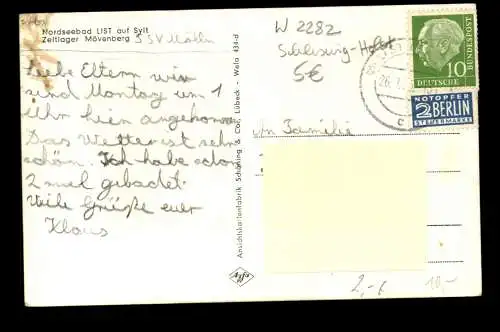 Nordseebad LIST auf Sylt
Zeltlager Mövenberg SSV Mölln
Liebe Eltern wir
sind Montag um 1
Uhr hier angekommen
Das Wetter ist sehr
schön. Ich habe schon
2 mal gebadet.
Viele Grüße euer
Klaus
Ansichtskartenfabrik Schöning & Co., Lübeck - Welo 434-d
Agfa
W 2282
Schleswig-Holst
5€
Familie
DEUTSCHE BUNDESPOST
10
NOTOPFER
2 BERLIN
STEUERMARKE
26.
c
2,-
10,-